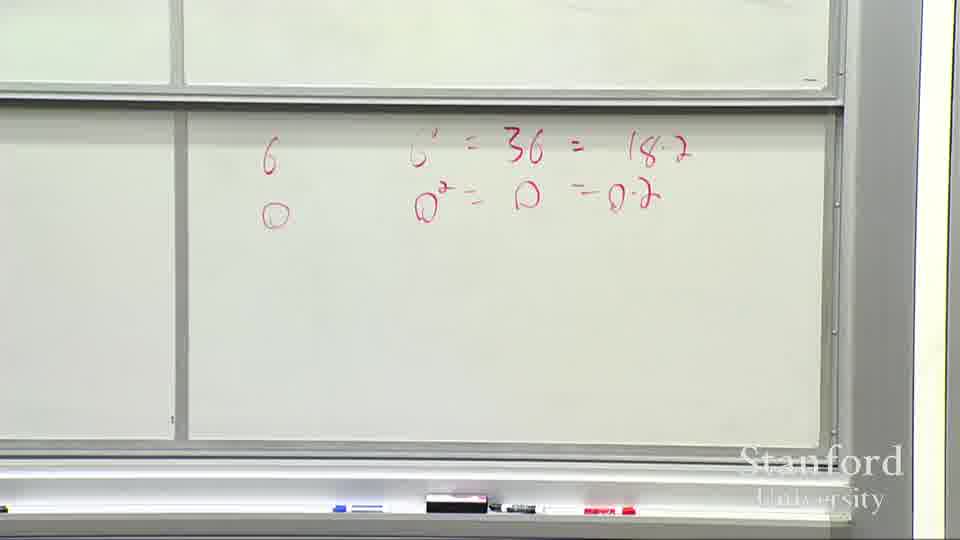 6 6² = 36 = 18·2
0 0² = 0 = 0·2
Stanford
University